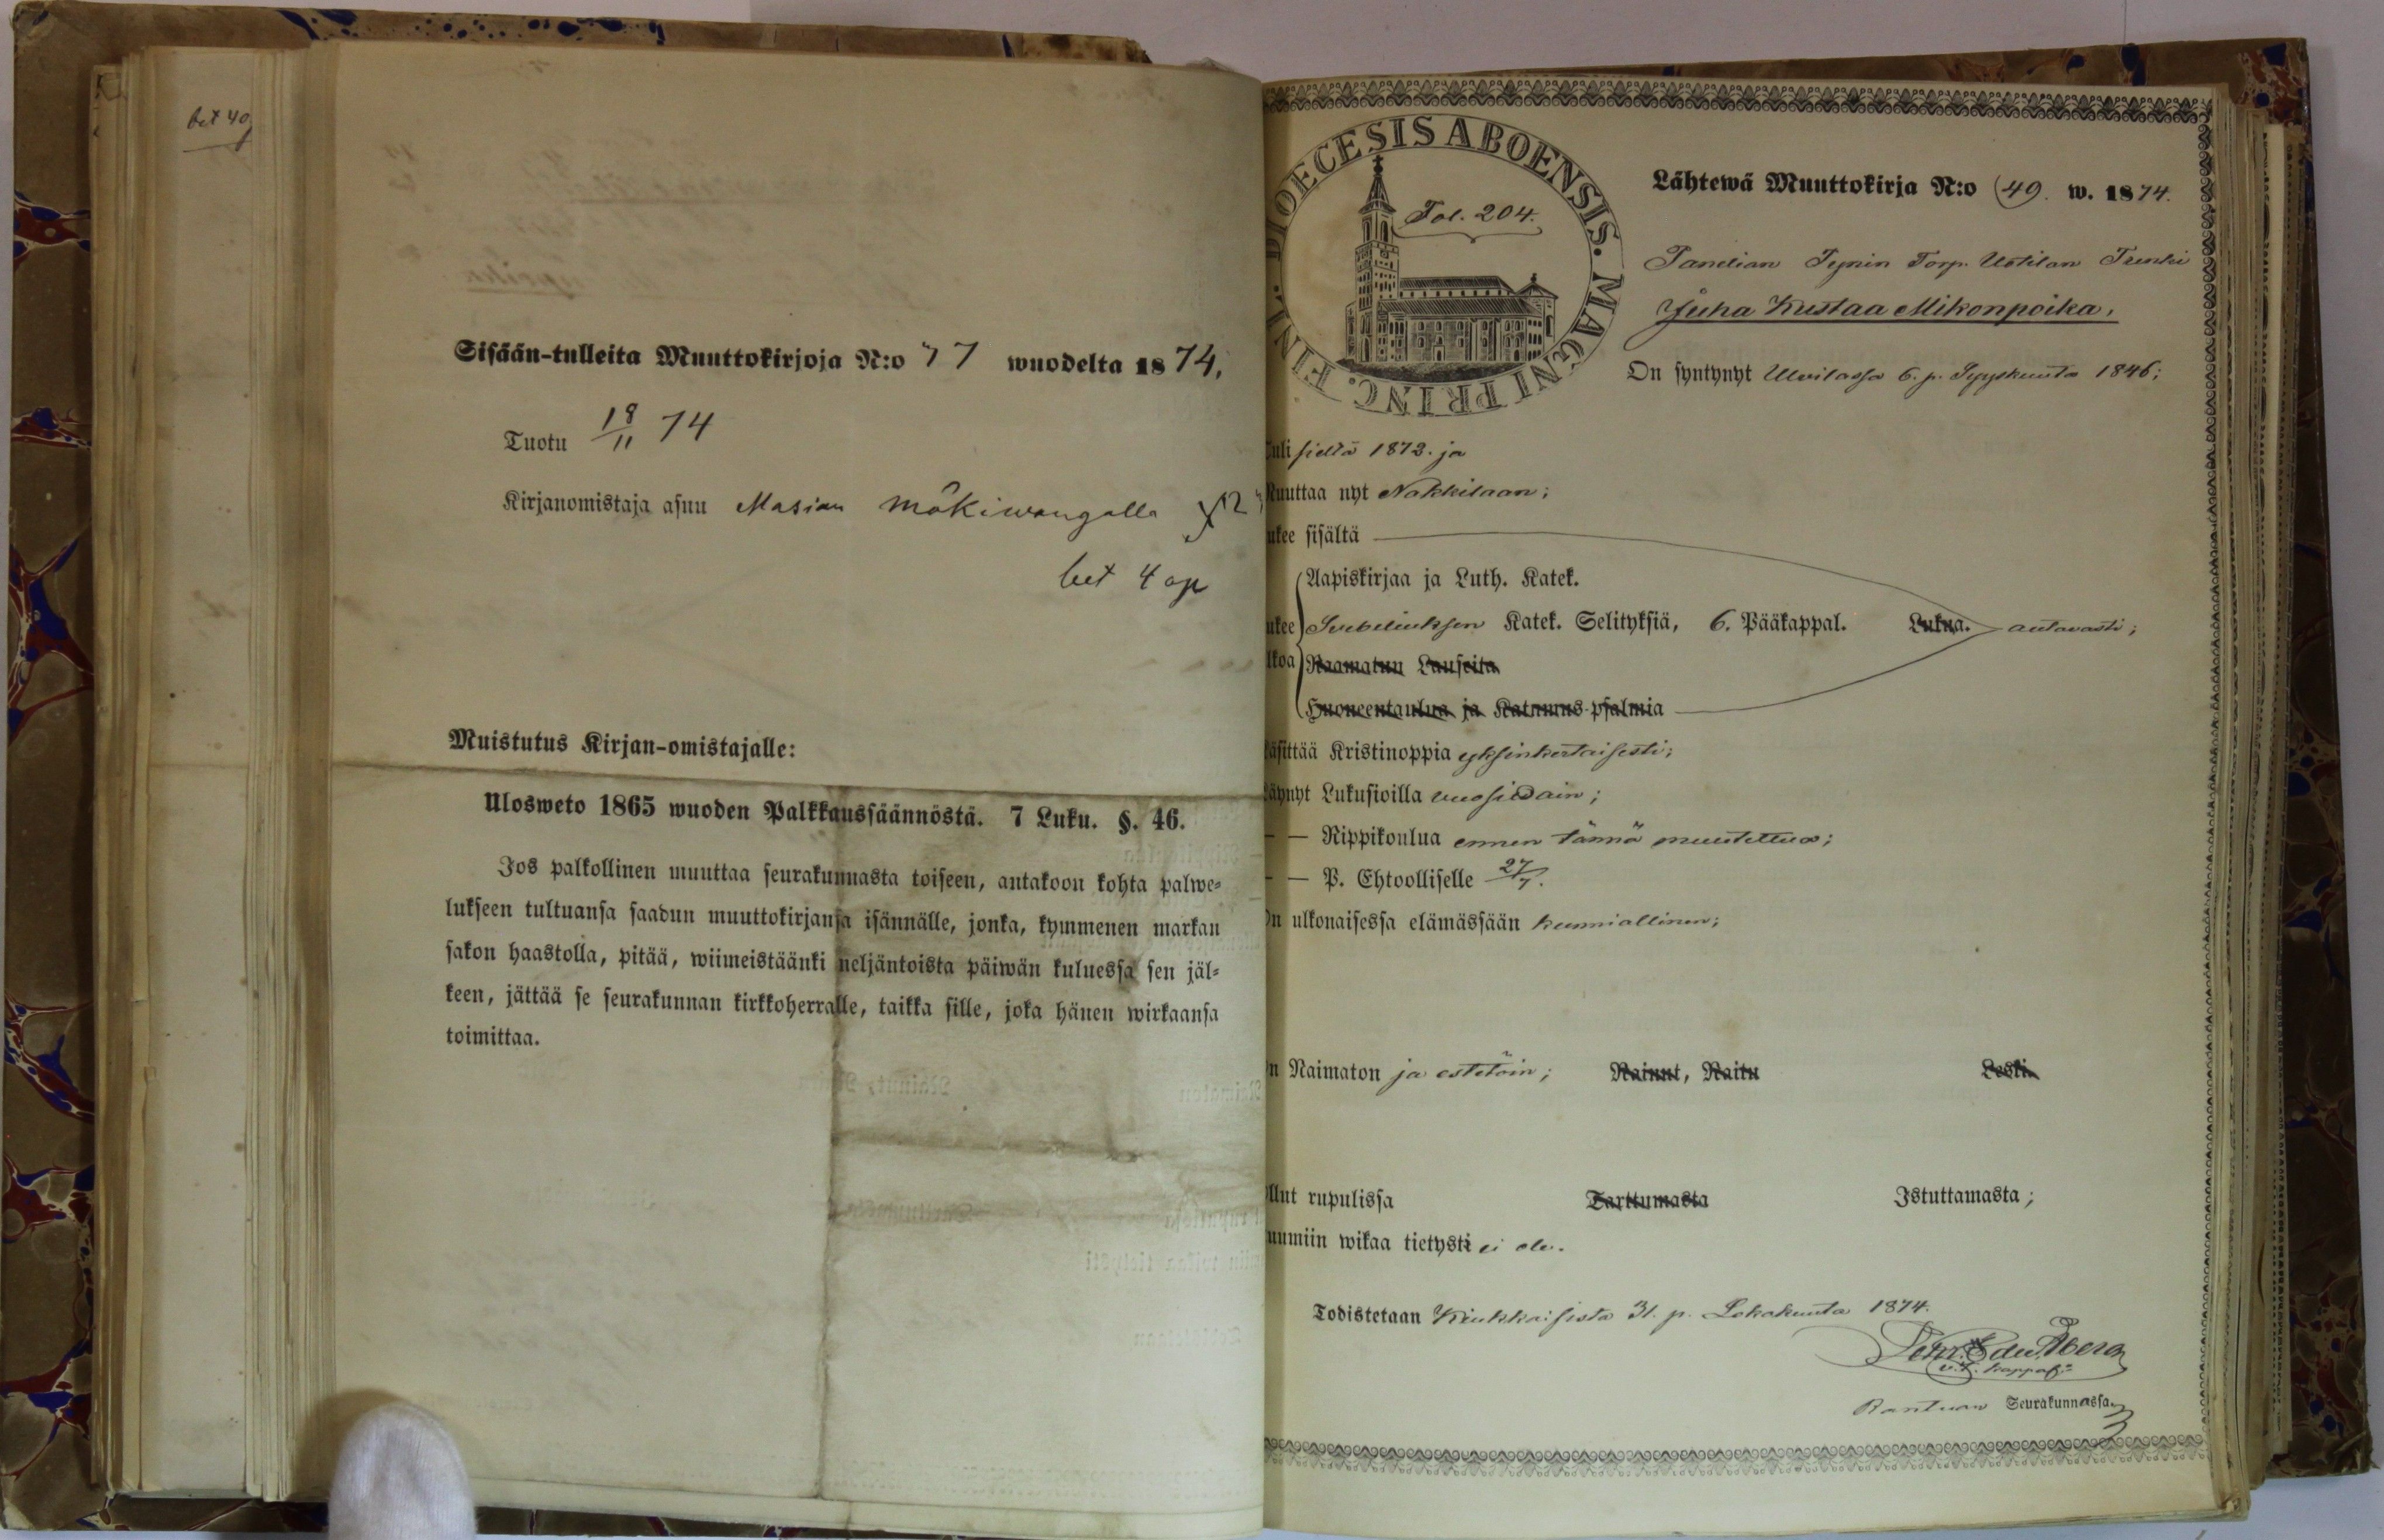 bet 40
Sisään-tulleita Muuttokirjoja N:o 77 wuodelta 1874.
Tuotu 18/11 74
Kirjanomistaja asuu Masian Mäkiwangalla
bet 4 op
Muistutus Kirjan-omistajalle:
Ulosweto 1865 wuoden Palkkaussäännöstä. 7 Luku. §. 46.
Jos palkollinen muuttaa seurakunnasta toiseen, antakoon kohta palwe-
lukseen tultuansa saadun muuttokirjansa isännälle, jonka, kymmenen markan
sakon haastolla, pitää, wiimeistäänki neljäntoista päiwän kuluessa sen jäl-
keen, jättää se seurakunnan kirkkoherralle, taikka sille, joka hänen wirkaansa
toimittaa.
DIOECESIS ABOENSIS. MAGNI PRINC. FINL.
Fol. 204.
Lähtewä Muuttokirja N:o 49. w. 1874.
Panelian Tynin Torp. Uotilan Trenki
Juha Kustaa Mikonpoika,
On syntynyt Ulvilassa 6. p. Syyskuuta 1846;
uli sieltä 1872. ja
uuttaa nyt Nakkilaan;
ukee sisältä
Aapiskirjaa ja Luth. Katek.
ukee Svebeliuksen Katek. Selityksiä, 6. Pääkappal. Lukua. autavasti;
lkoa Raamatun Lauseita
Huoneentaulua ja Katumus-psalmia
äsittää Kristinoppia yksinkertaisesti;
äynyt Lukusioilla vuosittain;
— — Rippikoulua ennen tännä muutettua;
— — P. Ehtoolliselle 27/7.
n ulkonaisessa elämässään kunniallinen;
n Naimaton ja estetöin; Nainut, Naitu Leski.
llut rupulissa Tarttumasta Istuttamasta;
uumiin wikaa tietysti ei ole.
Todistetaan Kiukkaisista 31. p. Lokakuuta 1874.
v.t. kappal:
Seurakunnassa